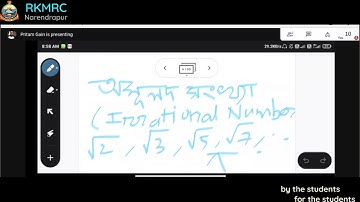 RKMRC
Narendrapur
Pritam Gain is presenting
10
8:58 AM
অমূলদ সংখ্যা
(Irrational Number
√2, √3, √5, √7, ...
π
by the students
for the students